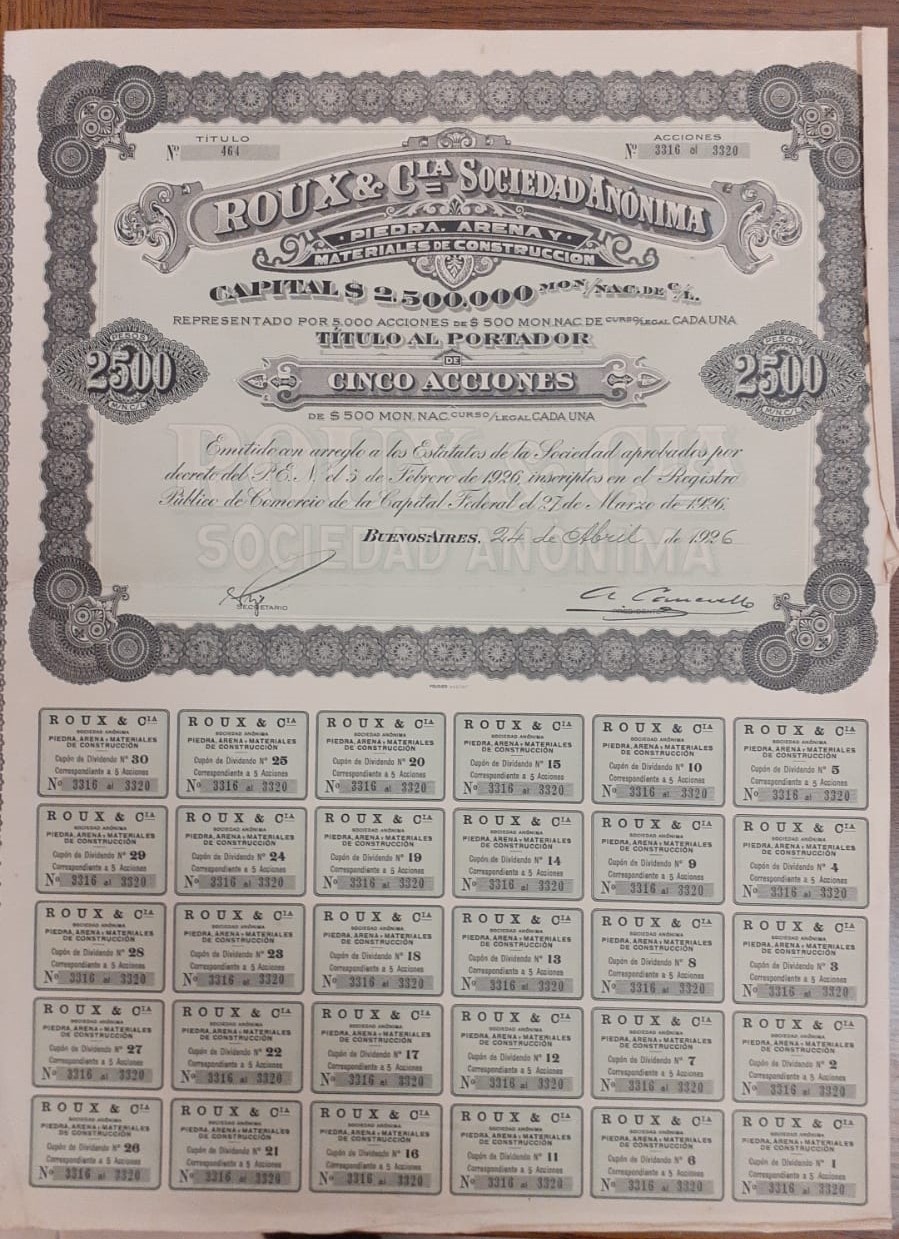 TÍTULO
Nº 464
ACCIONES
Nº 3316 al 3320
ROUX & CIA SOCIEDAD ANÓNIMA
PIEDRA, ARENA Y
MATERIALES DE CONSTRUCCION
CAPITAL $ 2.500.000 MON/NAC. DE C/L.
REPRESENTADO POR 5.000 ACCIONES DE $ 500 MON.NAC. DE CURSO/LEGAL CADA UNA
TÍTULO AL PORTADOR
DE
CINCO ACCIONES
DE $ 500 MON. NAC. CURSO/LEGAL CADA UNA
PESOS
2500
M/N. C/L.
PESOS
2500
M/N. C/L.
ROUX & CIA
SOCIEDAD ANÓNIMA
Emitido con arreglo a los Estatutos de la Sociedad aprobados por
decreto del P.E.N. el 5 de Febrero de 1926, inscriptos en el Registro
Público de Comercio de la Capital Federal el 27 de Marzo de 1926.
BUENOS-AIRES, 24 de Abril de 1926
SECRETARIO
PRESIDENTE
ROUX & CIA
SOCIEDAD ANÓNIMA
PIEDRA, ARENA Y MATERIALES
DE CONSTRUCCIÓN
Cupón de Dividendo Nº 30
Correspondiente a 5 Acciones
Nº 3316 al 3320
ROUX & CIA
SOCIEDAD ANÓNIMA
PIEDRA, ARENA Y MATERIALES
DE CONSTRUCCIÓN
Cupón de Dividendo Nº 25
Correspondiente a 5 Acciones
Nº 3316 al 3320
ROUX & CIA
SOCIEDAD ANÓNIMA
PIEDRA, ARENA Y MATERIALES
DE CONSTRUCCIÓN
Cupón de Dividendo Nº 20
Correspondiente a 5 Acciones
Nº 3316 al 3320
ROUX & CIA
SOCIEDAD ANÓNIMA
PIEDRA, ARENA Y MATERIALES
DE CONSTRUCCIÓN
Cupón de Dividendo Nº 15
Correspondiente a 5 Acciones
Nº 3316 al 3320
ROUX & CIA
SOCIEDAD ANÓNIMA
PIEDRA, ARENA Y MATERIALES
DE CONSTRUCCIÓN
Cupón de Dividendo Nº 10
Correspondiente a 5 Acciones
Nº 3316 al 3320
ROUX & CIA
SOCIEDAD ANÓNIMA
PIEDRA, ARENA Y MATERIALES
DE CONSTRUCCIÓN
Cupón de Dividendo Nº 5
Correspondiente a 5 Acciones
Nº 3316 al 3320
ROUX & CIA
SOCIEDAD ANÓNIMA
PIEDRA, ARENA Y MATERIALES
DE CONSTRUCCIÓN
Cupón de Dividendo Nº 29
Correspondiente a 5 Acciones
Nº 3316 al 3320
ROUX & CIA
SOCIEDAD ANÓNIMA
PIEDRA, ARENA Y MATERIALES
DE CONSTRUCCIÓN
Cupón de Dividendo Nº 24
Correspondiente a 5 Acciones
Nº 3316 al 3320
ROUX & CIA
SOCIEDAD ANÓNIMA
PIEDRA, ARENA Y MATERIALES
DE CONSTRUCCIÓN
Cupón de Dividendo Nº 19
Correspondiente a 5 Acciones
Nº 3316 al 3320
ROUX & CIA
SOCIEDAD ANÓNIMA
PIEDRA, ARENA Y MATERIALES
DE CONSTRUCCIÓN
Cupón de Dividendo Nº 14
Correspondiente a 5 Acciones
Nº 3316 al 3320
ROUX & CIA
SOCIEDAD ANÓNIMA
PIEDRA, ARENA Y MATERIALES
DE CONSTRUCCIÓN
Cupón de Dividendo Nº 9
Correspondiente a 5 Acciones
Nº 3316 al 3320
ROUX & CIA
SOCIEDAD ANÓNIMA
PIEDRA, ARENA Y MATERIALES
DE CONSTRUCCIÓN
Cupón de Dividendo Nº 4
Correspondiente a 5 Acciones
Nº 3316 al 3320
ROUX & CIA
SOCIEDAD ANÓNIMA
PIEDRA, ARENA Y MATERIALES
DE CONSTRUCCIÓN
Cupón de Dividendo Nº 28
Correspondiente a 5 Acciones
Nº 3316 al 3320
ROUX & CIA
SOCIEDAD ANÓNIMA
PIEDRA, ARENA Y MATERIALES
DE CONSTRUCCIÓN
Cupón de Dividendo Nº 23
Correspondiente a 5 Acciones
Nº 3316 al 3320
ROUX & CIA
SOCIEDAD ANÓNIMA
PIEDRA, ARENA Y MATERIALES
DE CONSTRUCCIÓN
Cupón de Dividendo Nº 18
Correspondiente a 5 Acciones
Nº 3316 al 3320
ROUX & CIA
SOCIEDAD ANÓNIMA
PIEDRA, ARENA Y MATERIALES
DE CONSTRUCCIÓN
Cupón de Dividendo Nº 13
Correspondiente a 5 Acciones
Nº 3316 al 3320
ROUX & CIA
SOCIEDAD ANÓNIMA
PIEDRA, ARENA Y MATERIALES
DE CONSTRUCCIÓN
Cupón de Dividendo Nº 8
Correspondiente a 5 Acciones
Nº 3316 al 3320
ROUX & CIA
SOCIEDAD ANÓNIMA
PIEDRA, ARENA Y MATERIALES
DE CONSTRUCCIÓN
Cupón de Dividendo Nº 3
Correspondiente a 5 Acciones
Nº 3316 al 3320
ROUX & CIA
SOCIEDAD ANÓNIMA
PIEDRA, ARENA Y MATERIALES
DE CONSTRUCCIÓN
Cupón de Dividendo Nº 27
Correspondiente a 5 Acciones
Nº 3316 al 3320
ROUX & CIA
SOCIEDAD ANÓNIMA
PIEDRA, ARENA Y MATERIALES
DE CONSTRUCCIÓN
Cupón de Dividendo Nº 22
Correspondiente a 5 Acciones
Nº 3316 al 3320
ROUX & CIA
SOCIEDAD ANÓNIMA
PIEDRA, ARENA Y MATERIALES
DE CONSTRUCCIÓN
Cupón de Dividendo Nº 17
Correspondiente a 5 Acciones
Nº 3316 al 3320
ROUX & CIA
SOCIEDAD ANÓNIMA
PIEDRA, ARENA Y MATERIALES
DE CONSTRUCCIÓN
Cupón de Dividendo Nº 12
Correspondiente a 5 Acciones
Nº 3316 al 3320
ROUX & CIA
SOCIEDAD ANÓNIMA
PIEDRA, ARENA Y MATERIALES
DE CONSTRUCCIÓN
Cupón de Dividendo Nº 7
Correspondiente a 5 Acciones
Nº 3316 al 3320
ROUX & CIA
SOCIEDAD ANÓNIMA
PIEDRA, ARENA Y MATERIALES
DE CONSTRUCCIÓN
Cupón de Dividendo Nº 2
Correspondiente a 5 Acciones
Nº 3316 al 3320
ROUX & CIA
SOCIEDAD ANÓNIMA
PIEDRA, ARENA Y MATERIALES
DE CONSTRUCCIÓN
Cupón de Dividendo Nº 26
Correspondiente a 5 Acciones
Nº 3316 al 3320
ROUX & CIA
SOCIEDAD ANÓNIMA
PIEDRA, ARENA Y MATERIALES
DE CONSTRUCCIÓN
Cupón de Dividendo Nº 21
Correspondiente a 5 Acciones
Nº 3316 al 3320
ROUX & CIA
SOCIEDAD ANÓNIMA
PIEDRA, ARENA Y MATERIALES
DE CONSTRUCCIÓN
Cupón de Dividendo Nº 16
Correspondiente a 5 Acciones
Nº 3316 al 3320
ROUX & CIA
SOCIEDAD ANÓNIMA
PIEDRA, ARENA Y MATERIALES
DE CONSTRUCCIÓN
Cupón de Dividendo Nº 11
Correspondiente a 5 Acciones
Nº 3316 al 3320
ROUX & CIA
SOCIEDAD ANÓNIMA
PIEDRA, ARENA Y MATERIALES
DE CONSTRUCCIÓN
Cupón de Dividendo Nº 6
Correspondiente a 5 Acciones
Nº 3316 al 3320
ROUX & CIA
SOCIEDAD ANÓNIMA
PIEDRA, ARENA Y MATERIALES
DE CONSTRUCCIÓN
Cupón de Dividendo Nº 1
Correspondiente a 5 Acciones
Nº 3316 al 3320